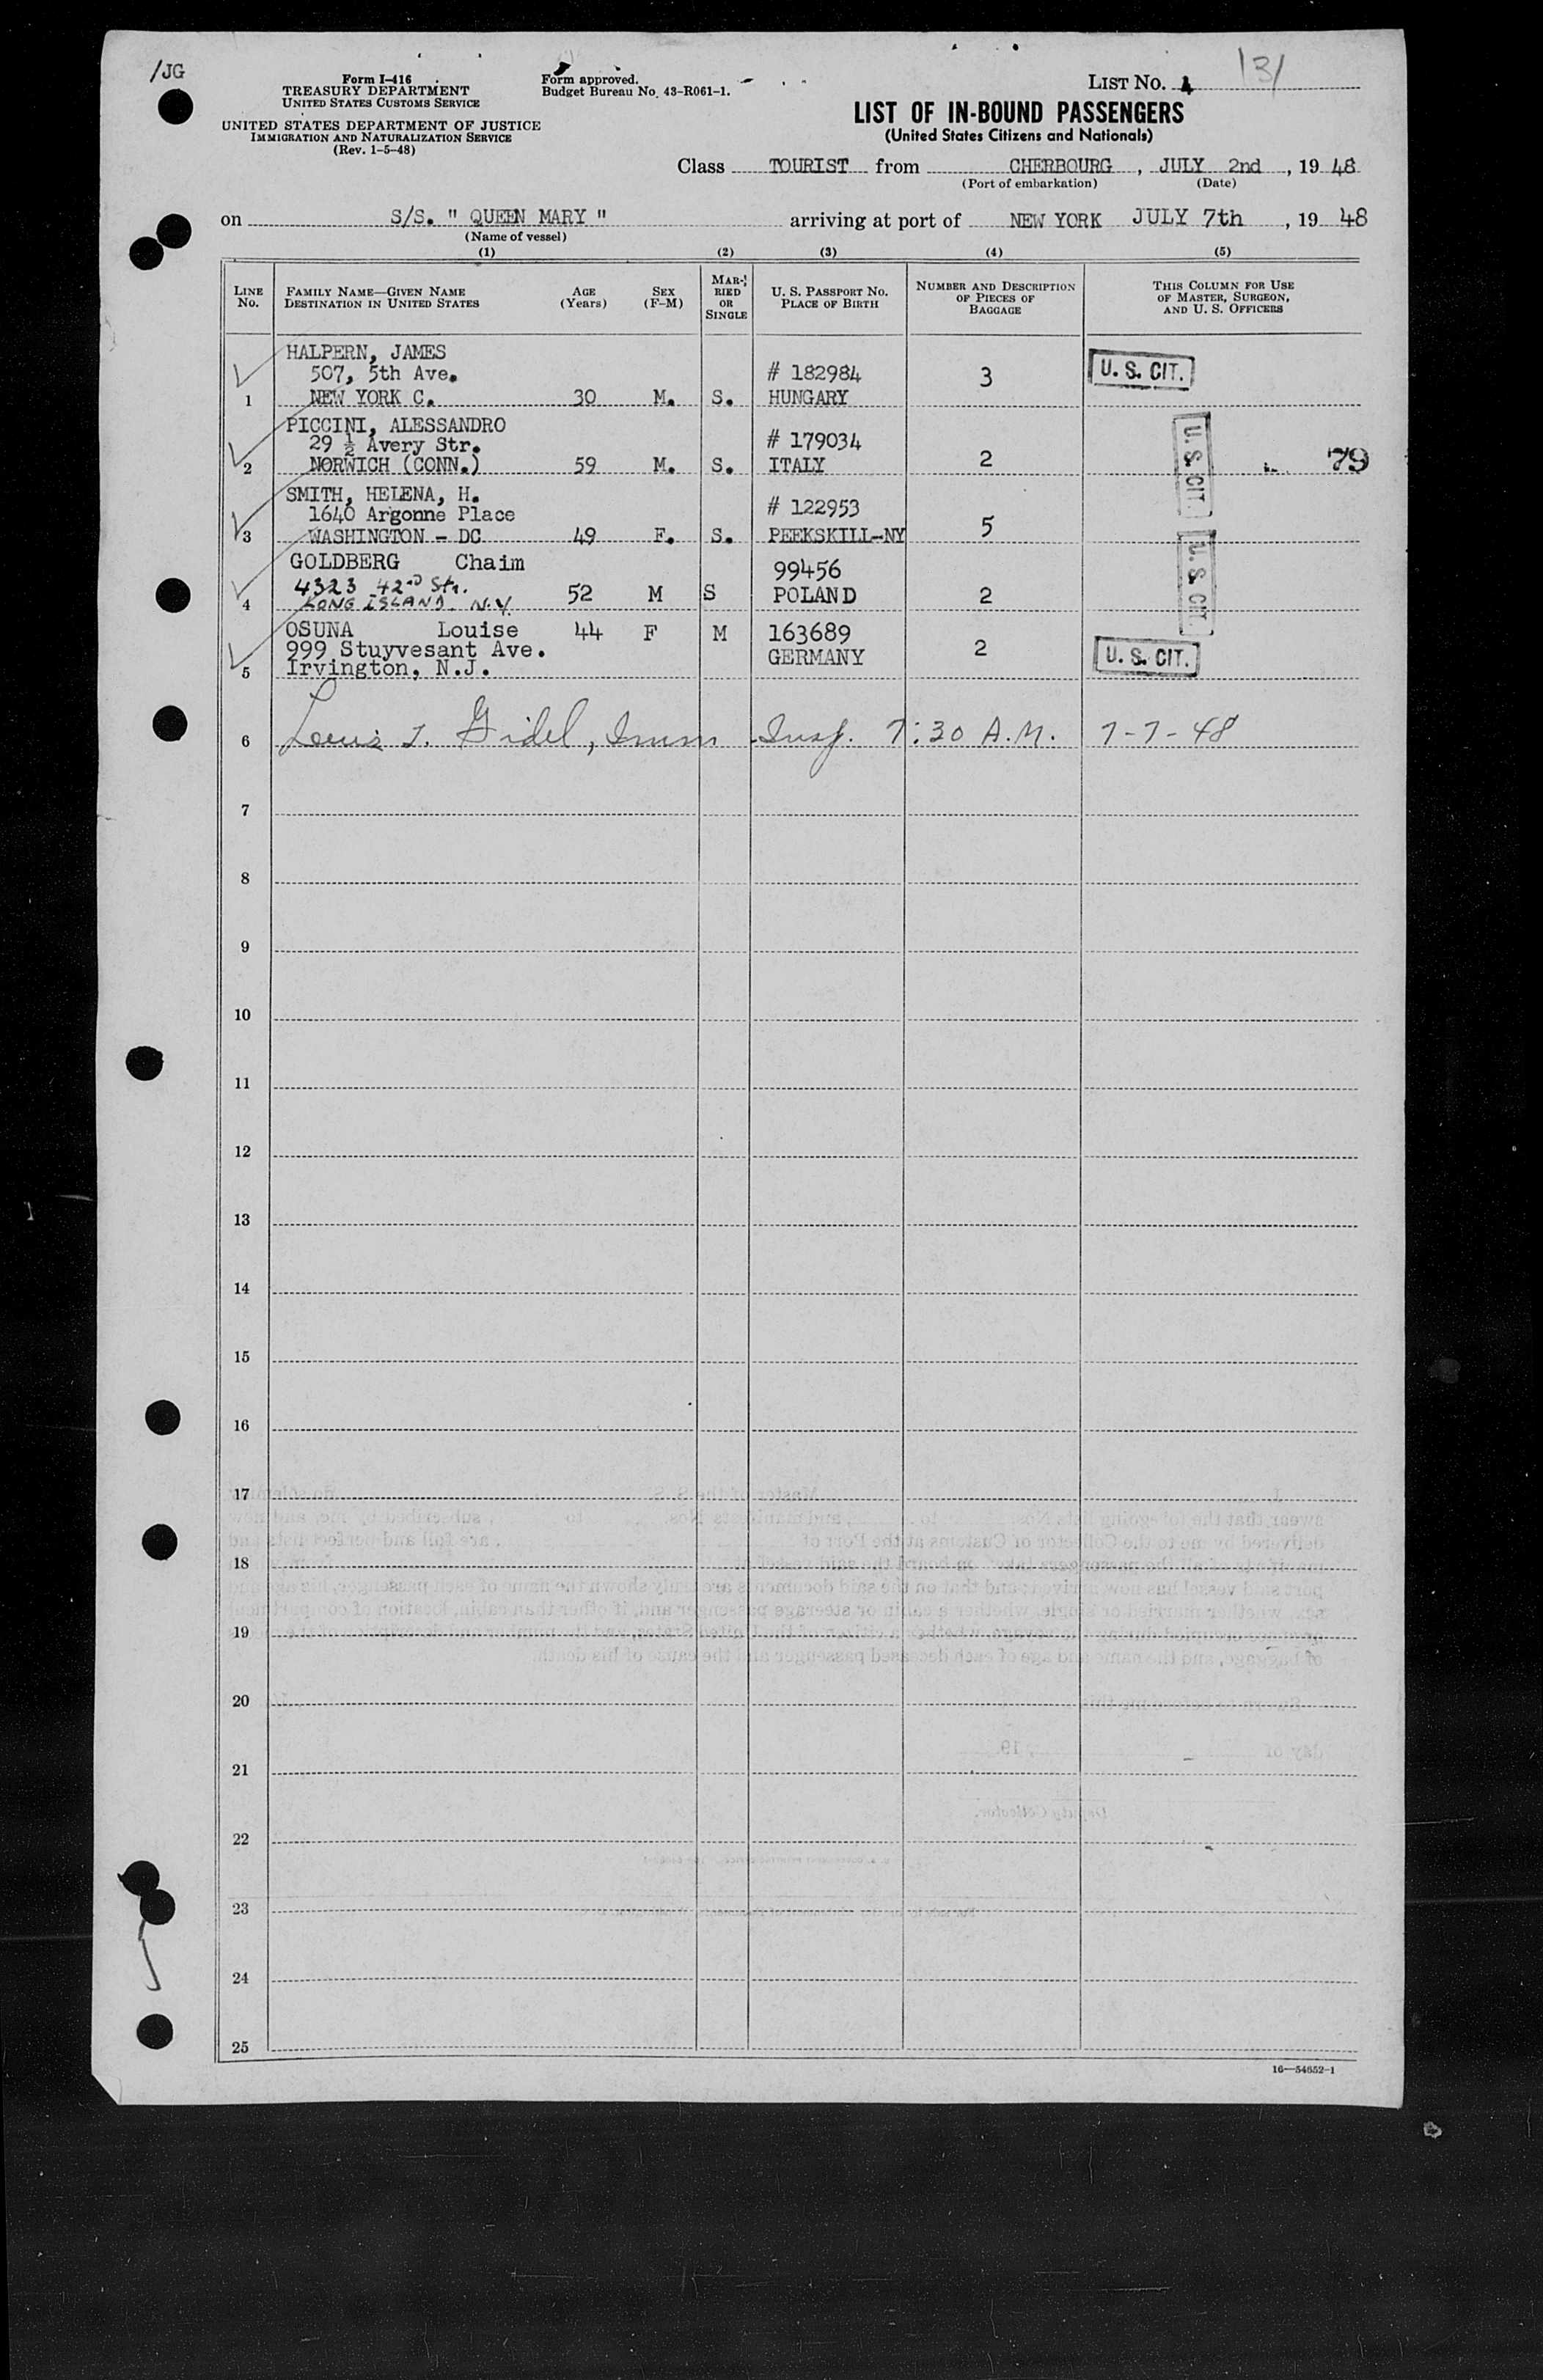 /JG
Form I-416
TREASURY DEPARTMENT
UNITED STATES CUSTOMS SERVICE
UNITED STATES DEPARTMENT OF JUSTICE
IMMIGRATION AND NATURALIZATION SERVICE
(Rev. 1-5-48)
Form approved.
Budget Bureau No. 43-R061-1.
LIST NO. 4 131
LIST OF IN-BOUND PASSENGERS
(United States Citizens and Nationals)
Class TOURIST from CHERBOURG, JULY 2nd, 19 48
(Port of embarkation) (Date)
on S/S. " QUEEN MARY " arriving at port of NEW YORK JULY 7th, 19 48
(Name of vessel)
(1) (2) (3) (4) (5)
LINE No. FAMILY NAME—GIVEN NAME DESTINATION IN UNITED STATES AGE (Years) SEX (F-M) MAR-RIED OR SINGLE U. S. PASSPORT NO. PLACE OF BIRTH NUMBER AND DESCRIPTION OF PIECES OF BAGGAGE THIS COLUMN FOR USE OF MASTER, SURGEON, AND U. S. OFFICERS
HALPERN, JAMES
507, 5th Ave. # 182984 3 U. S. CIT.
1 NEW YORK C. 30 M. S. HUNGARY
PICCINI, ALESSANDRO
29 ½ Avery Str. # 179034 2 U. S. CIT. 79
2 NORWICH (CONN.) 59 M. S. ITALY
SMITH, HELENA, H.
1640 Argonne Place # 122953 5
3 WASHINGTON - DC 49 F. S. PEEKSKILL-NY
GOLDBERG Chaim 99456 U. S. CIT.
4323 42ND Str. 52 M S POLAND 2
4 LONG ISLAND. N.Y.
OSUNA Louise 44 F M 163689
999 Stuyvesant Ave. GERMANY 2 U. S. CIT.
5 Irvington, N.J.
6 Louis J. Gidel, Imm Insp. 7:30 A.M. 7-7-48
7
8
9
10
11
12
13
14
15
16
17
18
19
20
21
22
23
24
25
16—54652-1